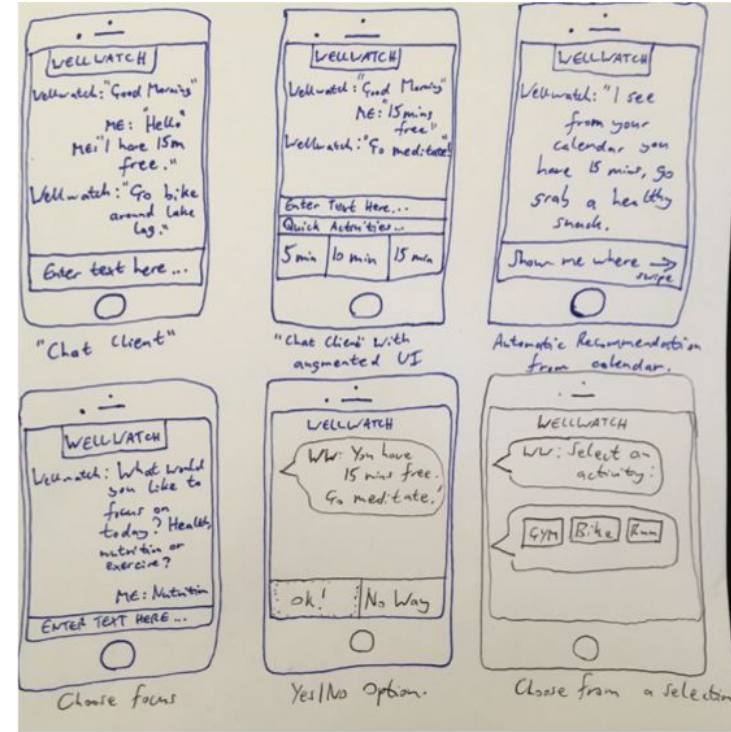 WELLWATCH
Wellwatch: "Good Morning"
ME: "Hello"
ME: "I have 15m
free."
Wellwatch: "Go bike
around lake
lag."
Enter text here...
"Chat Client"
WELLWATCH
Wellwatch: "Good Morning"
ME: "15 mins
free"
Wellwatch: "Go meditate!
Enter Text Here...
Quick Activities...
5 min 10 min 15 min
"Chat Client" With
augmented UI
WELLWATCH
Wellwatch: "I see
from your
calendar you
have 15 mins, go
grab a healthy
snack.
Show me where →
swipe
Automatic Recommendation
from calendar.
WELLWATCH
Wellwatch: What would
you like to
focus on
today? Health,
nutrition or
exercise?
ME: Nutrition
ENTER TEXT HERE...
Choose focus
WELLWATCH
WW: You have
15 mins free.
Go meditate!
ok! No Way
Yes/No Option.
WELLWATCH
WW: Select an
activity:
GYM Bike Run
Choose from a selection